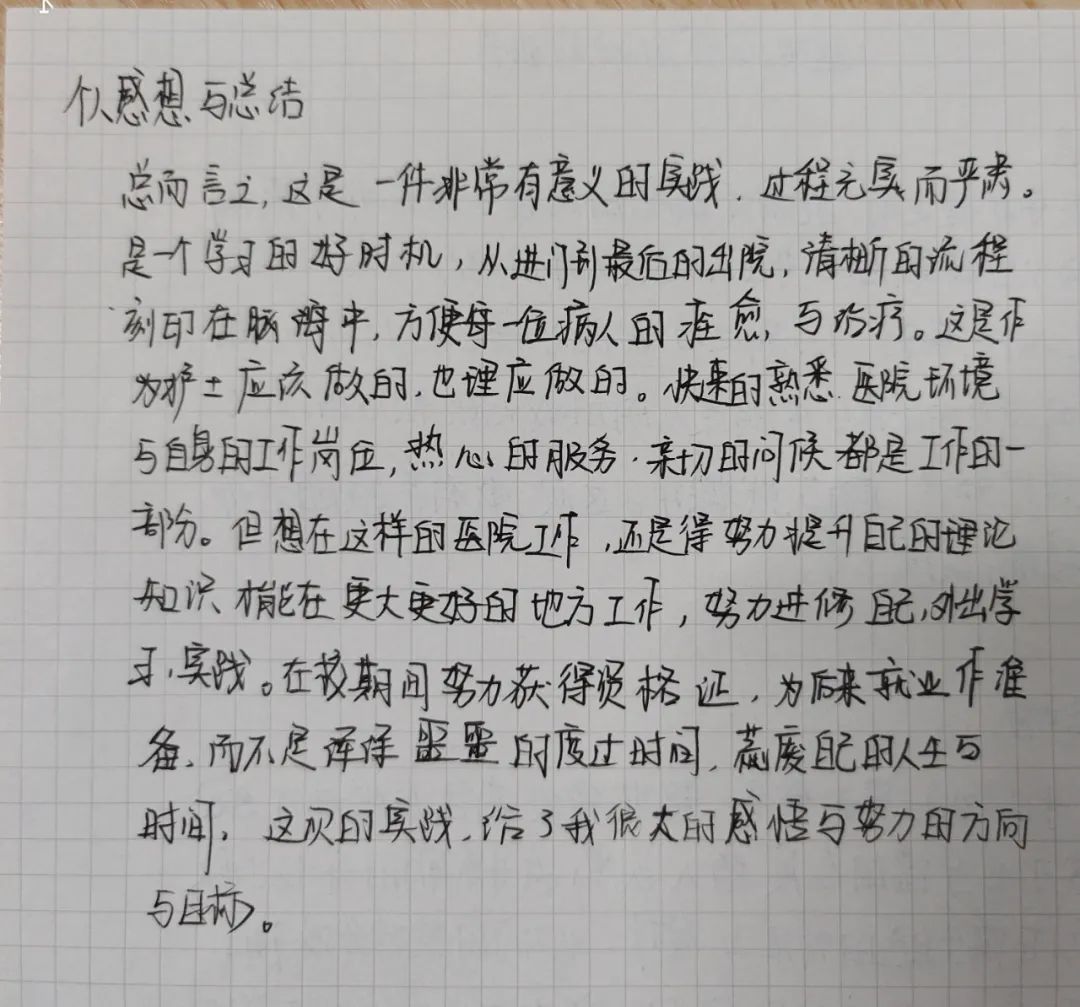 个人感想与总结
总而言之,这是一件非常有意义的实践,过程充实而严肃。
是一个学习的好时机,从进门到最后的出院,清晰的流程
刻印在脑海中,方便每一位病人的痊愈,与治疗。这是作
为护士应该做的,也理应做的。快来的熟悉医院环境
与自身的工作岗位,热心的服务,亲切的问候都是工作的一
部分。但想在这样的医院工作,还是得努力提升自己的理论
知识才能在更大更好的地方工作,努力进修自己,外出学
习,实践。在校期间努力获得资格证,为后来就业作准
备,而不是浑浑噩噩的度过时间,荒废自己的人生与
时间,这次的实践,给了我很大的感悟与努力的方向
与目标。